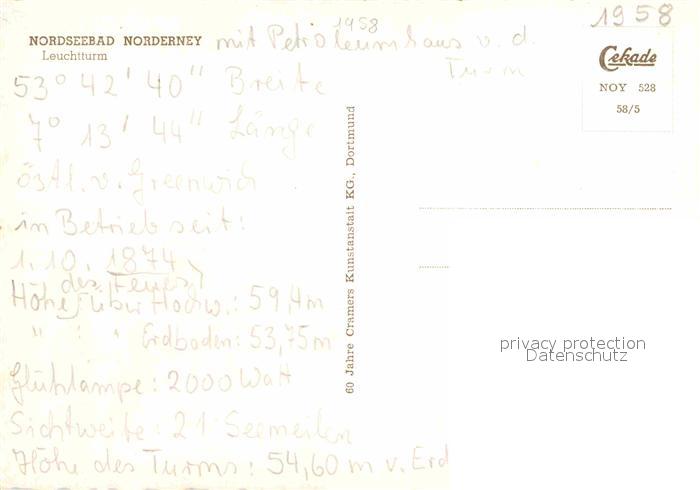 1958
1958
NORDSEEBAD NORDERNEY mit Petroleumhaus v. d.
Leuchtturm
Turm
53° 42' 40" Breite
7° 13' 44" Länge
östl. v. Greenwich
in Betrieb seit:
1. 10. 1874
des Feuers
Höhe über Hochw.: 59,4 m
" " " Erdboden: 53,75 m
Glühlampe: 2000 Watt
Sichtweite: 21 Seemeilen
Höhe des Turms: 54,60 m v. Erd
60 Jahre Cramers Kunstanstalt KG., Dortmund
Cekade
NOY 528
58/5
privacy protection
Datenschutz